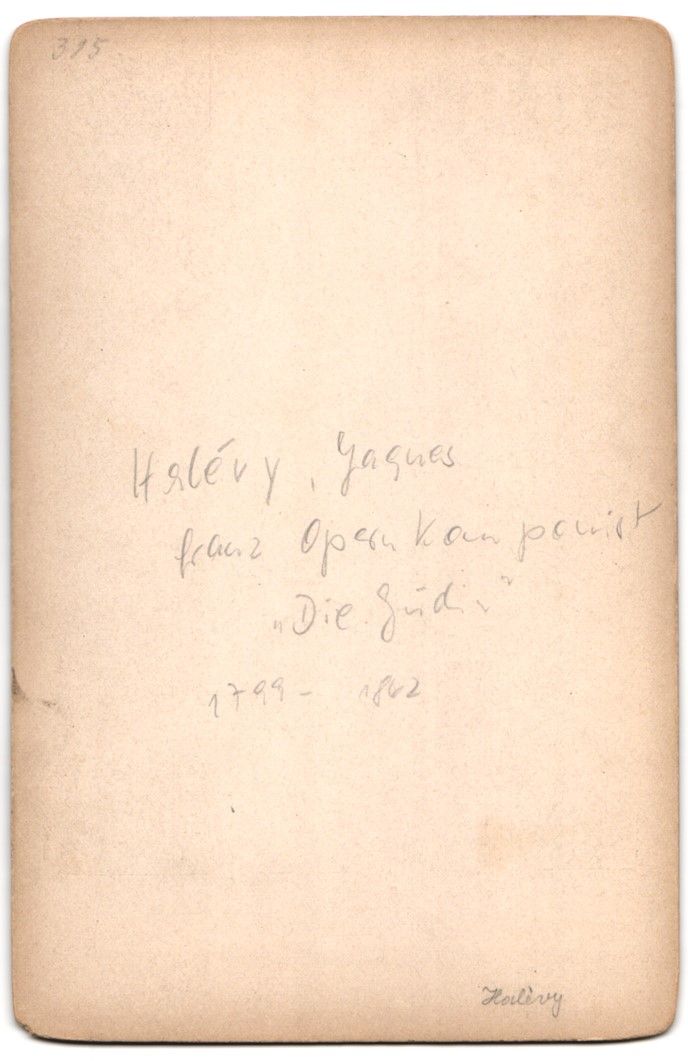 315
Halévy, Jaques
franz Opernkomponist
„Die Jüdin"
1799 - 1862
Halévy